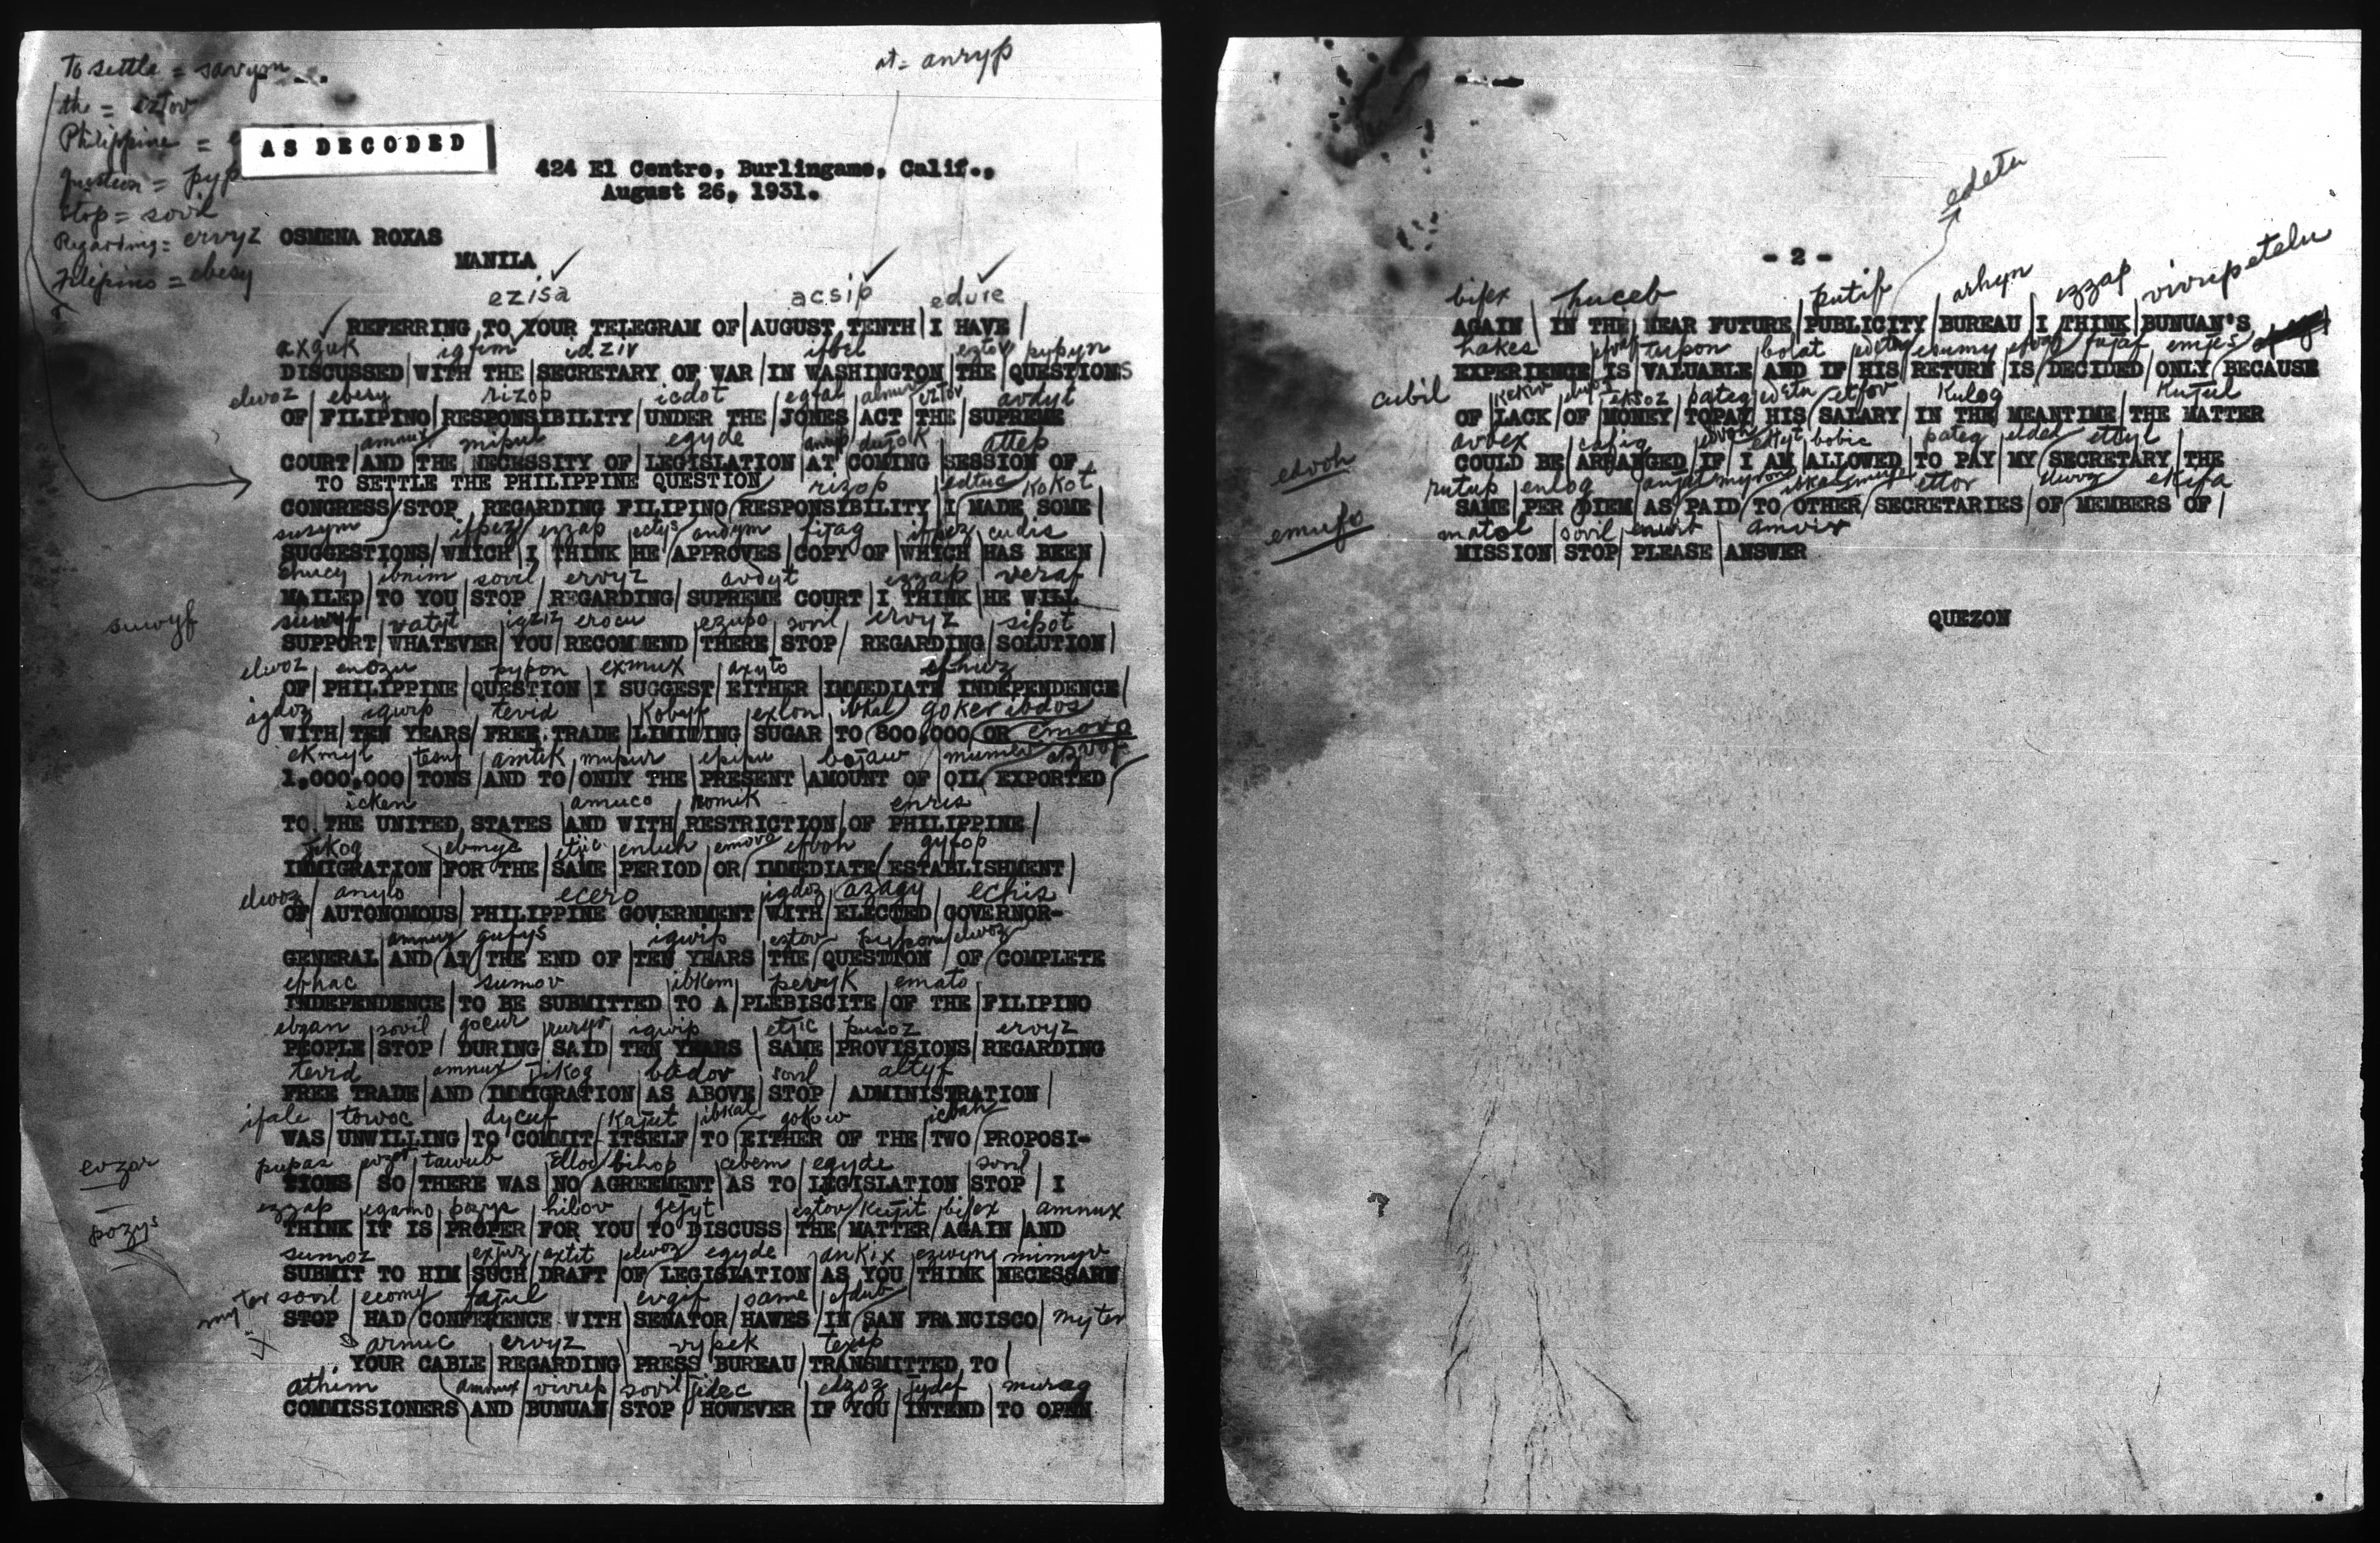 To settle = savym
at = anryp
the = eztov
Philippine =
AS DECODED
Question = pyp
424 El Centro, Burlingame, Calif.,
August 26, 1931.
Stop = sovil
Regarding = ervyz
OSMENA ROXAS
MANILA
Filipino = ebesy
ezisa acsip eduie
REFERRING TO YOUR TELEGRAM OF AUGUST TENTH I HAVE
axguk igfim idziv ifbel eztov pypyn
DISCUSSED WITH THE SECRETARY OF WAR IN WASHINGTON THE QUESTIONS
elwoz ebesy rizop icdot egfal eztov avdyt
OF FILIPINO RESPONSIBILITY UNDER THE JONES ACT THE SUPREME
amnux mipul egyde anryp dugok attep
COURT AND THE NECESSITY OF LEGISLATION AT COMING SESSION OF
TO SETTLE THE PHILIPPINE QUESTION
rizop edtuc kokot
CONGRESS STOP REGARDING FILIPINO RESPONSIBILITY I MADE SOME
susym ifpez ezzap andym fitag ifpez cudis
SUGGESTIONS WHICH I THINK HE APPROVES COPY OF WHICH HAS BEEN
ehucy ibnim sovil ervyz avdyt ezzap veraf
MAILED TO YOU STOP REGARDING SUPREME COURT I THINK HE WILL
suwyf
suwyf vatyt igziz erocu ezupo sovil ervyz sipot
SUPPORT WHATEVER YOU RECOMMEND THERE STOP REGARDING SOLUTION
elwoz enozu pypon exmux axyto efhuz
OF PHILIPPINE QUESTION I SUGGEST EITHER IMMEDIATE INDEPENDENCE
igdoz igwip tevid kobyf exlon ibkal goker ibdos
WITH TEN YEARS FREE TRADE LIMITING SUGAR TO 800,000 OR emova
ekmyt amtik mupur epipu bojaw
1,000,000 TONS AND TO ONLY THE PRESENT AMOUNT OF OIL EXPORTED
icken amuco romik enris
TO THE UNITED STATES AND WITH RESTRICTION OF PHILIPPINE
jikog ebmyc etjic enluh emova efboh gyfop
IMMIGRATION FOR THE SAME PERIOD OR IMMEDIATE ESTABLISHMENT
elwoz anylo ecero igdoz azagy echis
OF AUTONOMOUS PHILIPPINE GOVERNMENT WITH ELECTED GOVERNOR-
amnux gufys igwip eztov pypon elwoz
GENERAL AND AT THE END OF TEN YEARS THE QUESTION OF COMPLETE
efhac sumov ibkem pervyk emato
INDEPENDENCE TO BE SUBMITTED TO A PLEBISCITE OF THE FILIPINO
ebgan sovil gocur ruryv igwip etjic pusoz ervyz
PEOPLE STOP DURING SAID TEN YEARS SAME PROVISIONS REGARDING
tevid amnux jikog bedov sovil altyf
FREE TRADE AND IMMIGRATION AS ABOVE STOP ADMINISTRATION
ifale towoc dycuf kajut ibkal gokow icbah
WAS UNWILLING TO COMMIT ITSELF TO EITHER OF THE TWO PROPOSI-
evzar
pupas evzar tawub bihop abem egyde sovil
TIONS SO THERE WAS NO AGREEMENT AS TO LEGISLATION STOP I
ezzap egamo pozys hibov gejyt eztov kujit bifex amnux
THINK IT IS PROPER FOR YOU TO DISCUSS THE MATTER AGAIN AND
pozys
sumoz exjuz axtit elwoz egyde ankix ezwyn mimyv
SUBMIT TO HIM SUCH DRAFT OF LEGISLATION AS YOU THINK NECESSARY
myter sovil ecomy fajul evgif same efdub
STOP HAD CONFERENCE WITH SENATOR HAWES IN SAN FRANCISCO myter
armuc ervyz vypek texsp
YOUR CABLE REGARDING PRESS BUREAU TRANSMITTED TO
athim amnux vivup sovil jidec edgoz jydef murag
COMMISSIONERS AND BUNUAN STOP HOWEVER IF YOU INTEND TO OPEN
edetu
- 2 -
bifex huceb putif arhyn ezzap vivup etelu
AGAIN IN THE NEAR FUTURE PUBLICITY BUREAU I THINK BUNUAN'S
hakes turpon bolat edetu esumy fujaf emjes
EXPERIENCE IS VALUABLE AND IF HIS RETURN IS DECIDED ONLY BECAUSE
cubil kekiv eksoz pateg edetu etfov kulog kujul
OF LACK OF MONEY TOPAY HIS SALARY IN THE MEANTIME THE MATTER
edvoh
avbex cafig edvoh ektyt bobic pateg eldel ettyl
COULD BE ARRANGED IF I AM ALLOWED TO PAY MY SECRETARY THE
rutup enlog ettor elwoz ekifa
SAME PER DIEM AS PAID TO OTHER SECRETARIES OF MEMBERS OF
emufo
matol sovil amvix
MISSION STOP PLEASE ANSWER
QUEZON
?